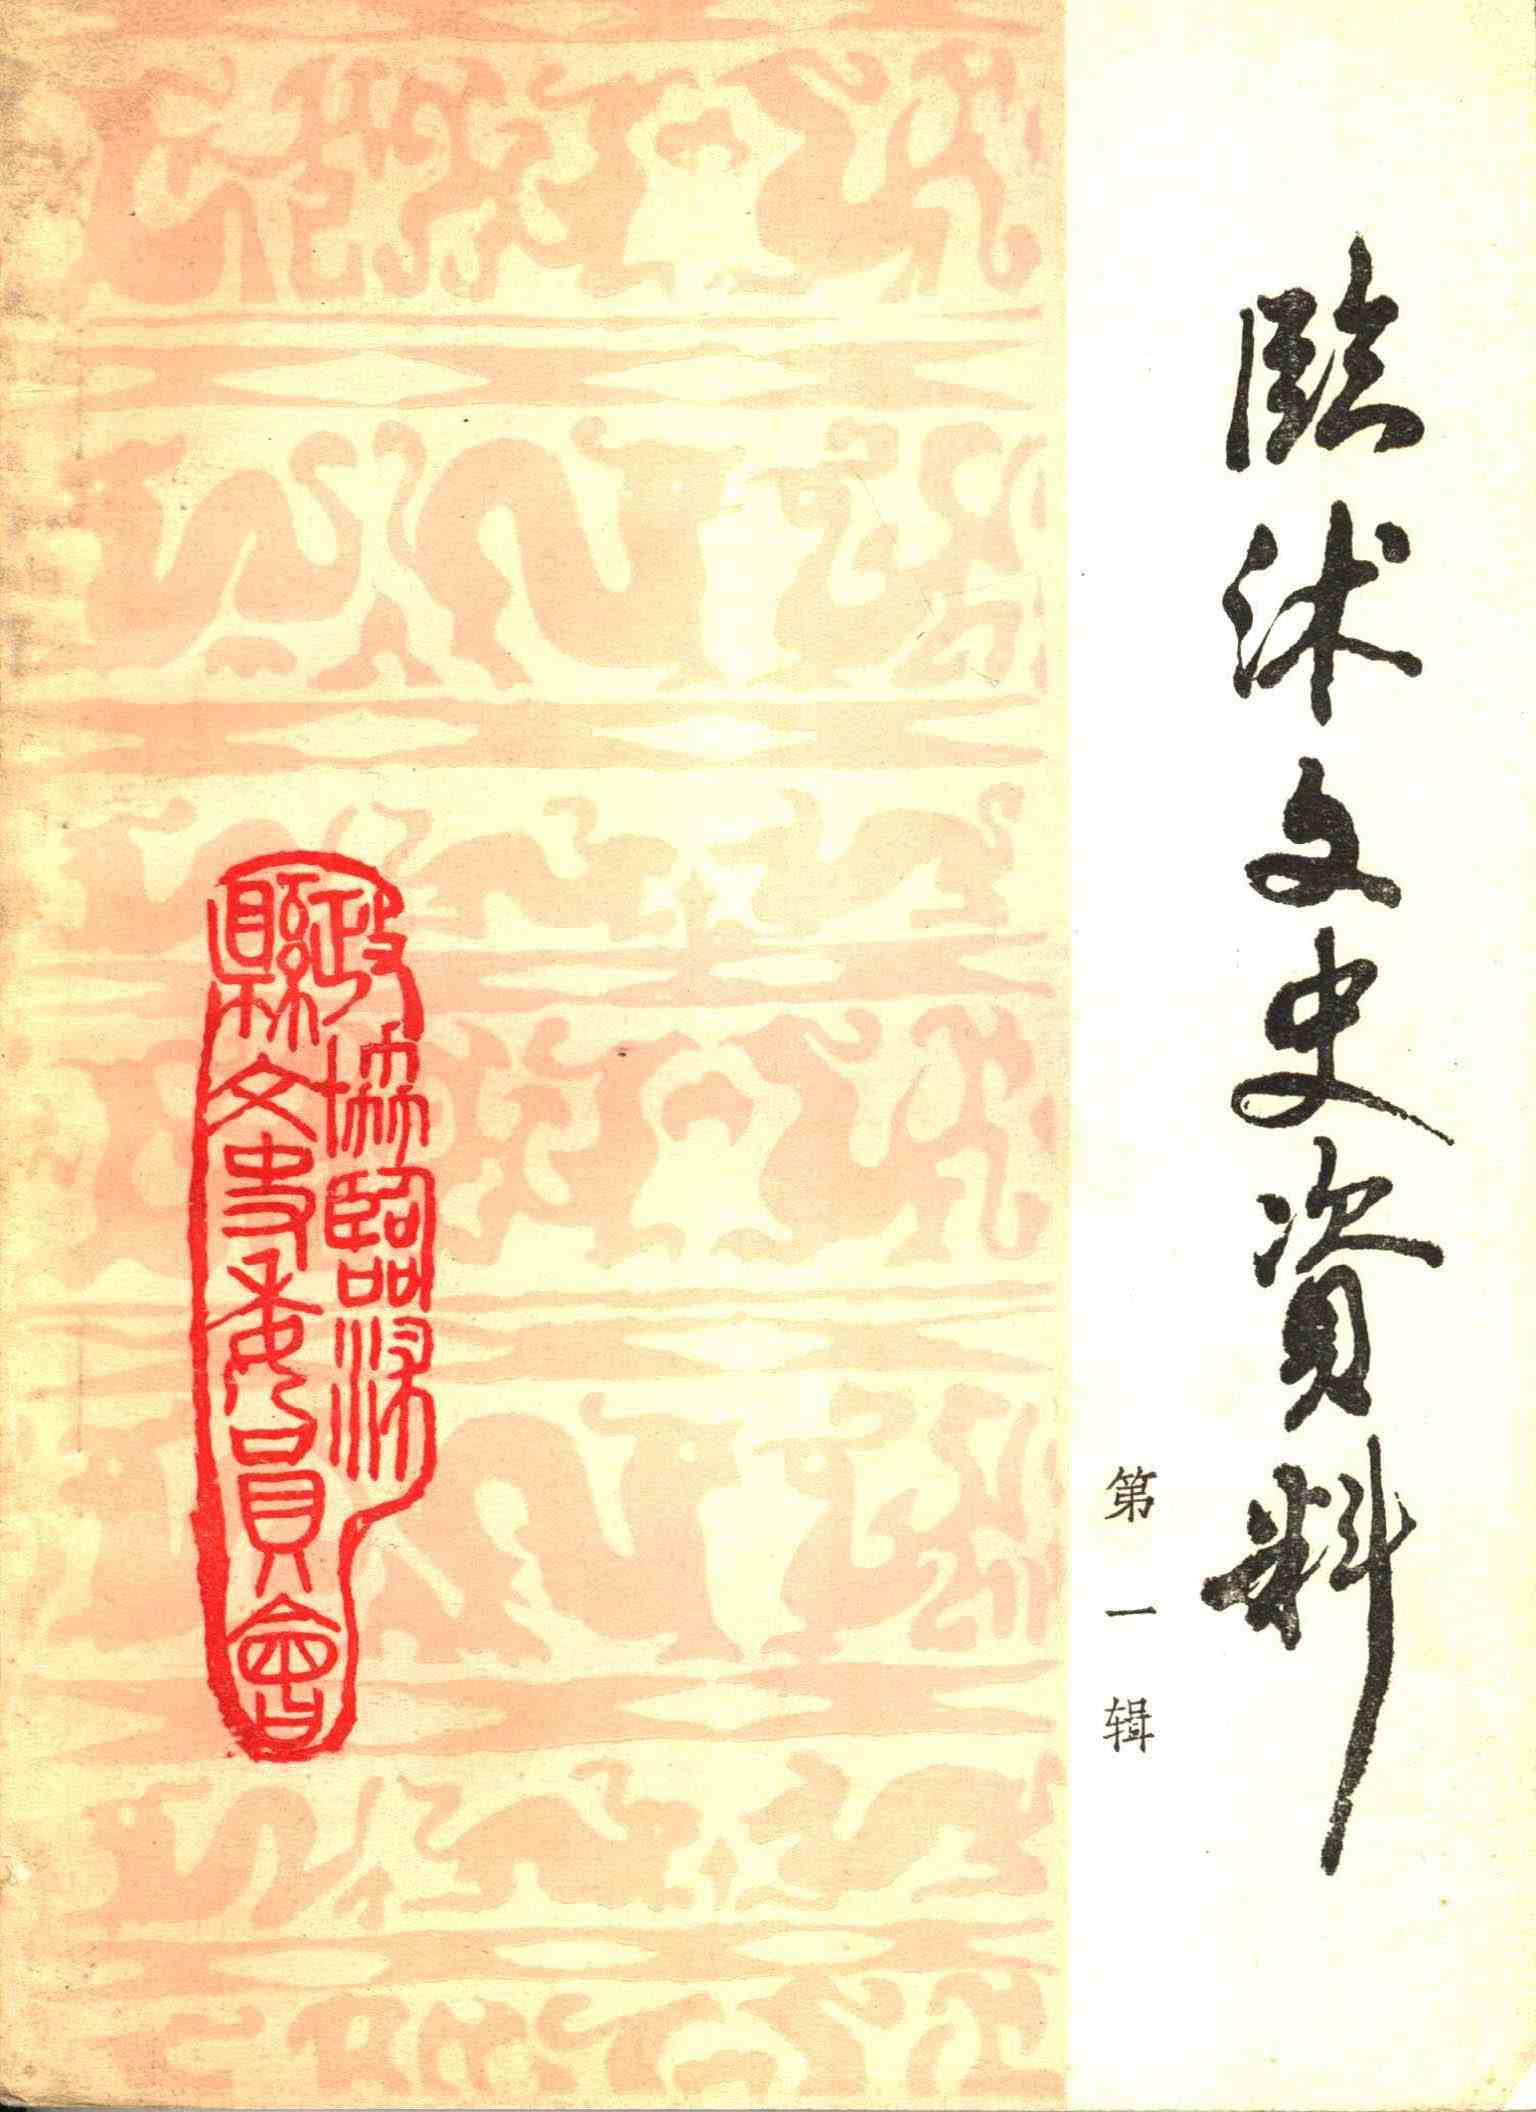 臨沭文史資料
第一辑
政協臨沭
縣文史委員會